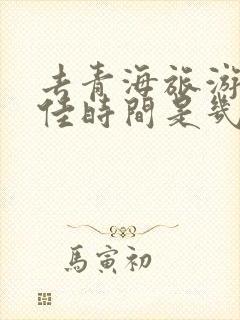 去青海旅游
佳時間是幾
馬寅初